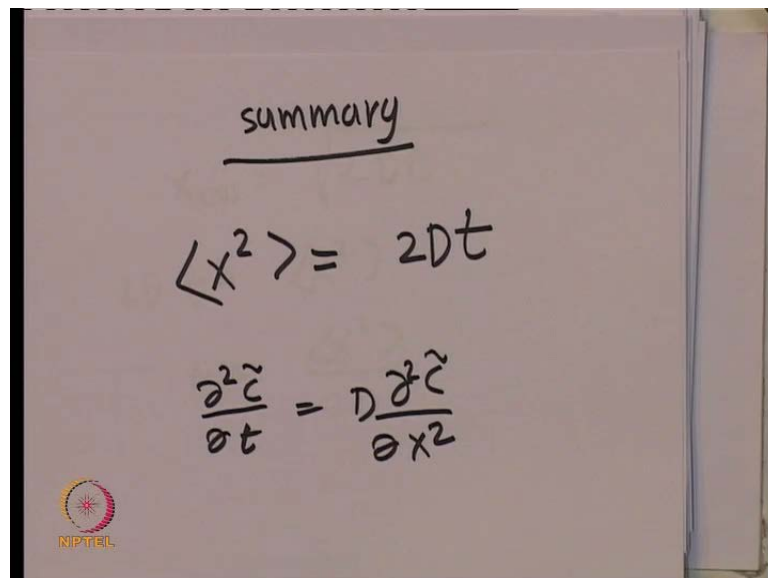 summary
⟨x²⟩ = 2Dt
∂²c̃/∂t = D ∂²c̃/∂x²
NPTEL